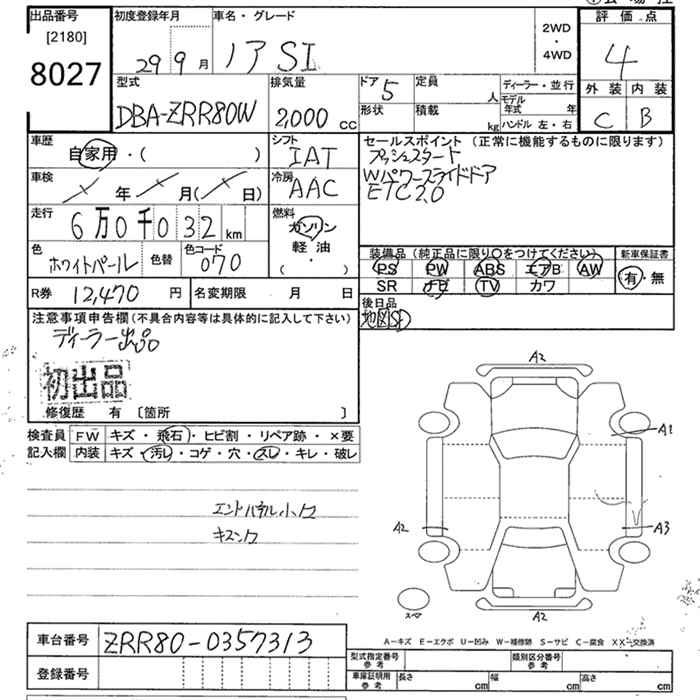 出品番号
[2180]
8027
初度登録年月
29 9月
車名・グレード
ノア SI
2WD
・
4WD
評価点
4
外装 内装
C B
型式
DBA-ZRR80W
排気量
2,000 cc
ドア 5
形状
定員 人
積載 kg
ディーラー・並行
モデル年式 年
ハンドル 左・右
車歴
自家用・( )
車検
年 月( 日)
走行
6万0千032km
色
ホワイトパール
色替
色コード
070
シフト
IAT
冷房
AAC
燃料
ガソリン
軽油
( ・ )
セールスポイント(正常に機能するものに限ります)
プッシュスタート
Wパワースライドドア
ETC2.0
装備品(純正品に限り○をつけてください)
PS PW ABS エアB AW
SR ナビ TV カワ
新車保証書
有・無
後日品
地図SD
R券 12,470円
名変期限 月 日
注意事項申告欄(不具合内容等は具体的に記入して下さい)
ディーラー出品
初出品
修復歴 有 〔箇所 〕
検査員
記入欄
FW キズ・飛石・ヒビ割・リペア跡・×要
内装 キズ・汚レ・コゲ・穴・スレ・キレ・破レ
エンドパネル小
キズ
A2
A1
A2
A3
A2
スペア
A-キズ E-エクボ U-凹み W-補修跡 S-サビ C-腐食 XX-交換済
車台番号 ZRR80-0357313
登録番号
型式指定番号
参考
類別区分番号
参考
車庫証明用
参考
長さ cm
幅 cm
高さ cm